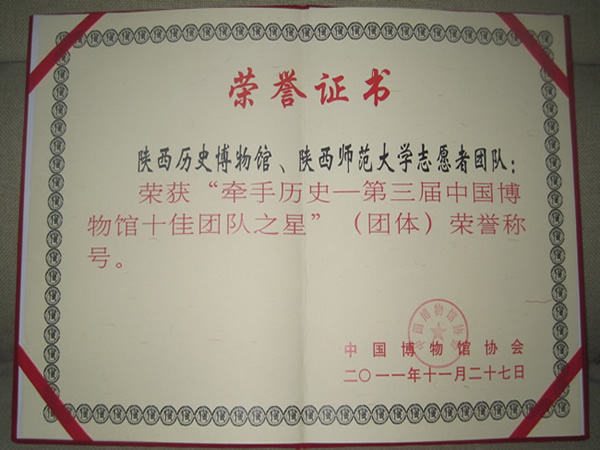 荣誉证书
陕西历史博物馆、陕西师范大学志愿者团队：
荣获“牵手历史—第三届中国博
物馆十佳团队之星”（团体）荣誉称
号。
中国博物馆协会
中国博物馆协会
二〇一一年十一月二十七日